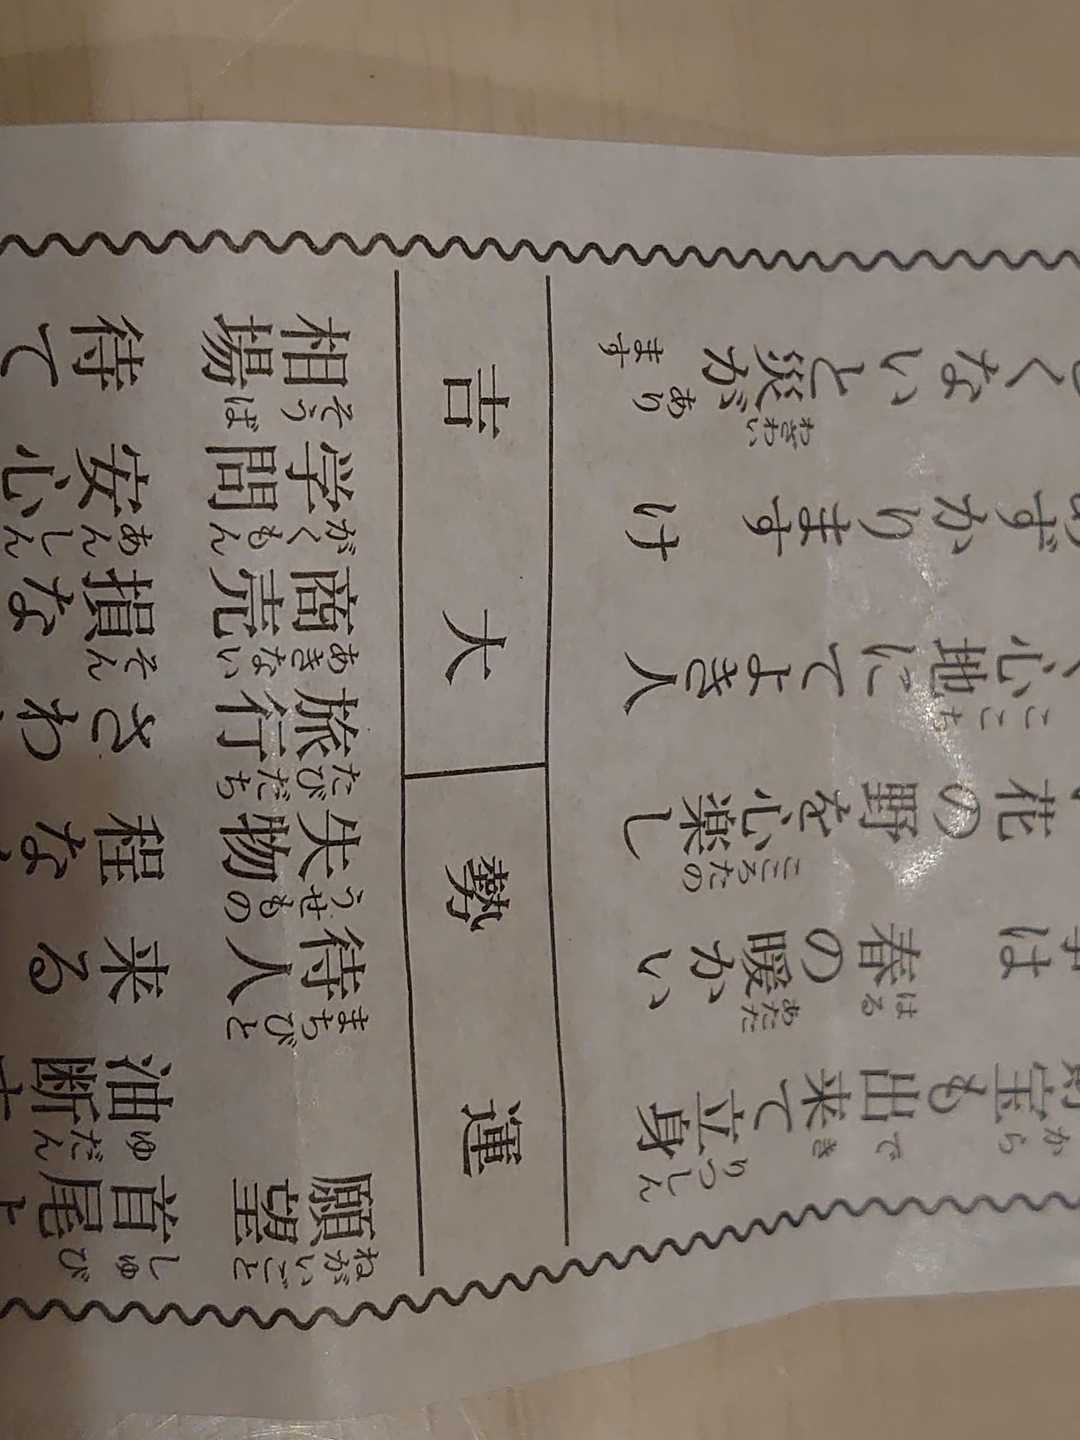 宝も出来て立身
は春の暖かい
花の野を心楽し
心地にてよき人
ずかります け
くないと災があります
運勢 大吉
願望 首尾
油断
待人 来る
失物 程な
旅行 さわ
商売 損な
学問 安心
相場 待て